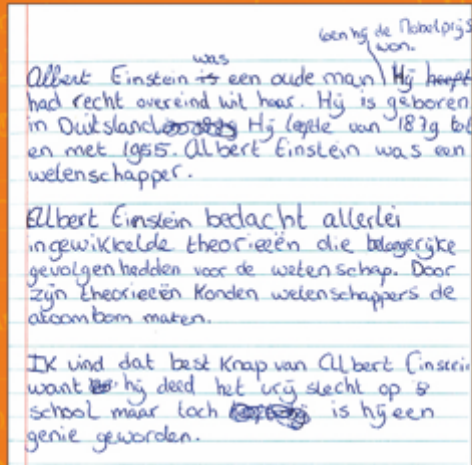 toen hij de Nobelprijs
won.
was
Albert Einstein is een oude man Hij heeft
had recht overeind wit haar. Hij is geboren
in Duitsland Hij leefde van 1879 tot
en met 1955. Albert Einstein was een
wetenschapper.
Albert Einstein bedacht allerlei
ingewikkelde theorieën die belangrijke
gevolgen hadden voor de wetenschap. Door
zijn theorieën konden wetenschappers de
atoombom maken.
Ik vind dat best knap van Albert Einstein
want hij deed het vrij slecht op
school maar toch is hij een
genie geworden.